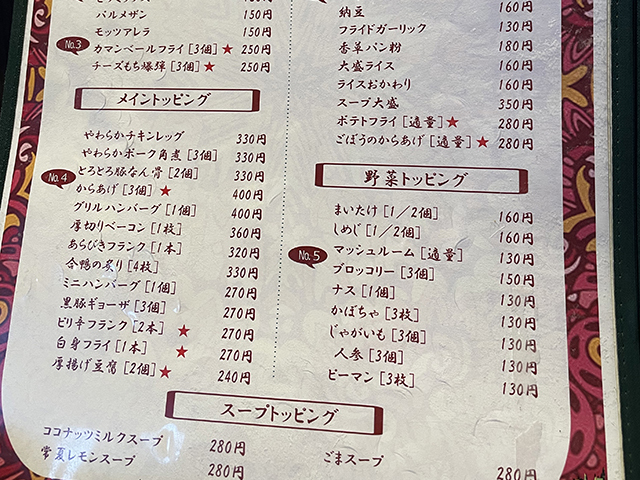 パルメザン 150円
モッツアレラ 150円
No.3 カマンベールフライ [3個] ★ 250円
チーズもち爆弾 [3個] ★ 250円
メイントッピング
やわらかチキンレッグ 330円
やわらかポーク角煮 [3個] 330円
No.4 とろとろ豚なん骨 [2個] 330円
からあげ [3個] ★ 400円
グリルハンバーグ [1個] 400円
厚切りベーコン [1枚] 360円
あらびきフランク [1本] 320円
合鴨の炙り [4枚] 330円
ミニハンバーグ [1個] 270円
黒豚ギョーザ [3個] 270円
ピリ辛フランク [2本] ★ 270円
白身フライ [1本] ★ 270円
厚揚げ豆腐 [2個] ★ 240円
納豆 160円
フライドガーリック 130円
香草パン粉 180円
大盛ライス 160円
ライスおかわり 160円
スープ大盛 350円
ポテトフライ [適量] ★ 280円
ごぼうのからあげ [適量] ★ 280円
野菜トッピング
まいたけ [1/2個] 160円
しめじ [1/2個] 160円
No.5 マッシュルーム [適量] 130円
ブロッコリー [3個] 150円
ナス [1個] 130円
かぼちゃ [3枚] 130円
じゃがいも [3個] 130円
人参 [3個] 130円
ピーマン [3枚] 130円
スープトッピング
ココナッツミルクスープ 280円
常夏レモンスープ 280円
ごまスープ 280円